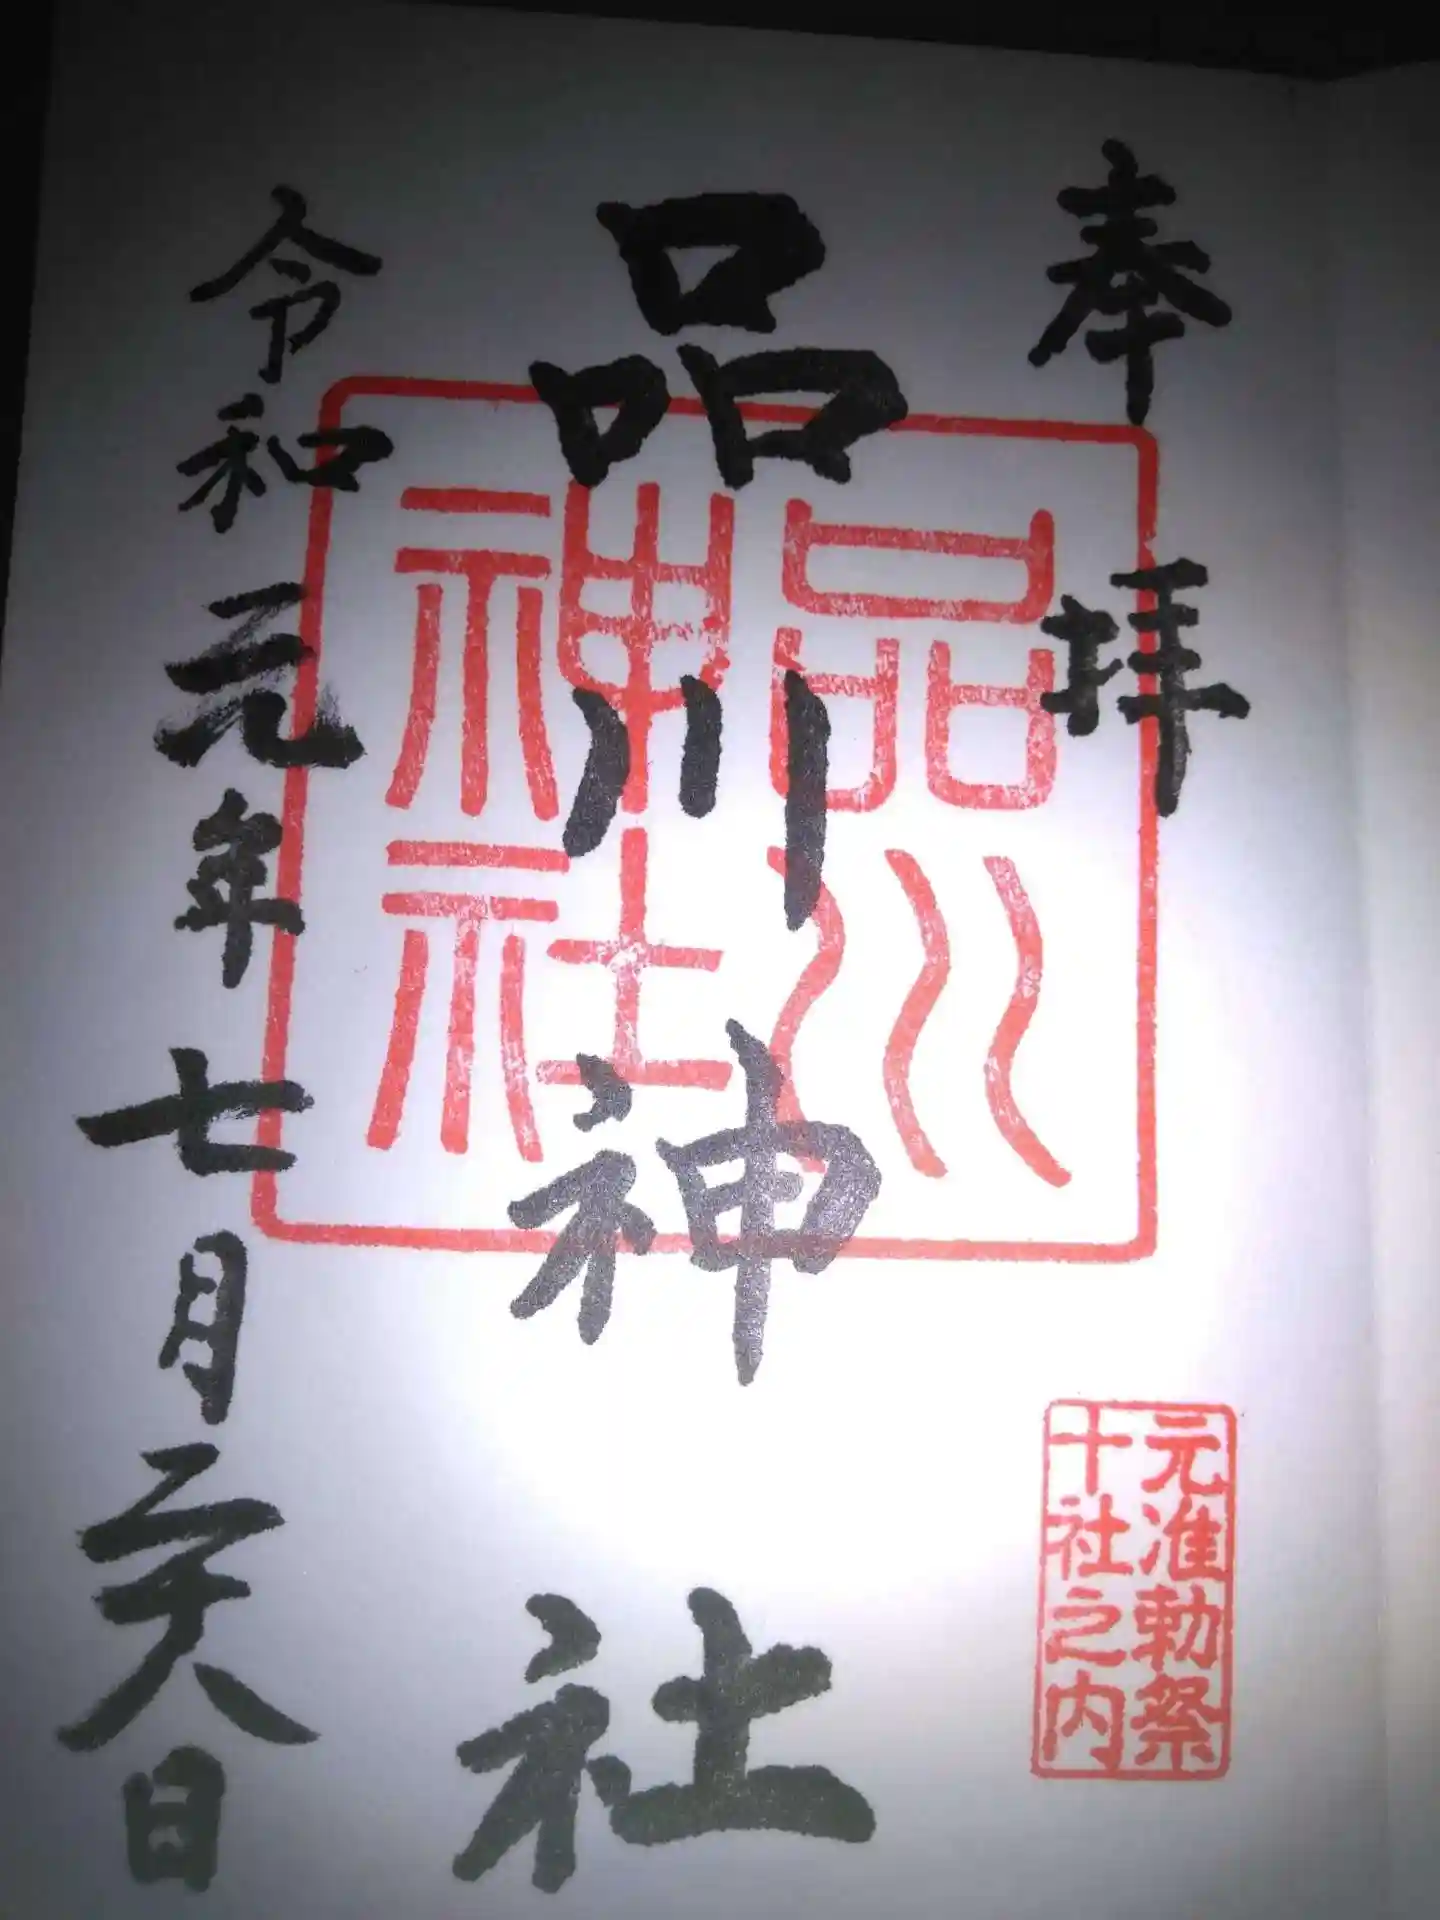 奉拝
元准勅祭
十社之内
品川神社
品川
神社
令和元年七月二十八日